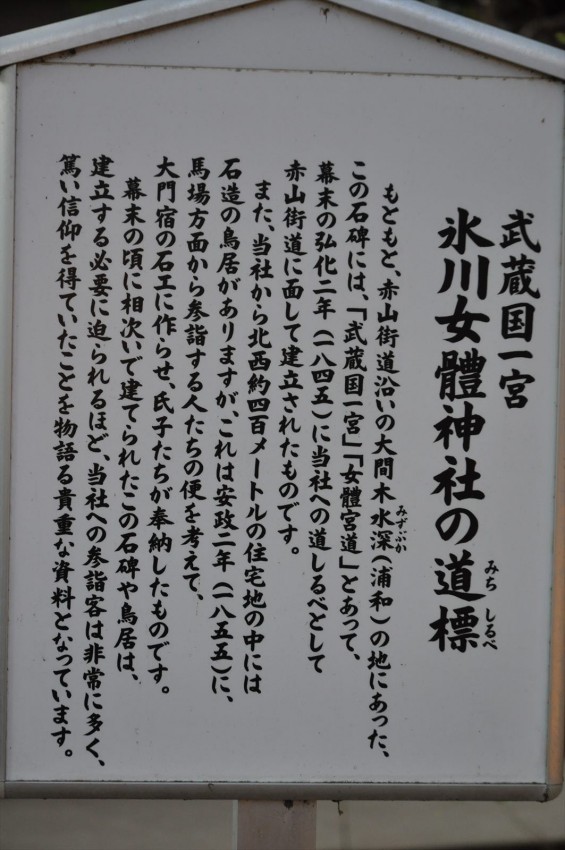 武蔵国一宮
氷川女體神社の道標
みち しるべ
もともと、赤山街道沿いの大間木水深（浦和）の地にあった、
みずぶか
この石碑には、「武蔵国一宮」「女體宮道」とあって、
幕末の弘化二年（一八四五）に当社への道しるべとして
赤山街道に面して建立されたものです。
また、当社から北西約四百メートルの住宅地の中には
石造の鳥居がありますが、これは安政二年（一八五五）に、
馬場方面から参詣する人たちの便を考えて、
大門宿の石工に作らせ、氏子たちが奉納したものです。
幕末の頃に相次いで建てられたこの石碑や鳥居は、
建立する必要に迫られるほど、当社への参詣客は非常に多く、
篤い信仰を得ていたことを物語る貴重な資料となっています。